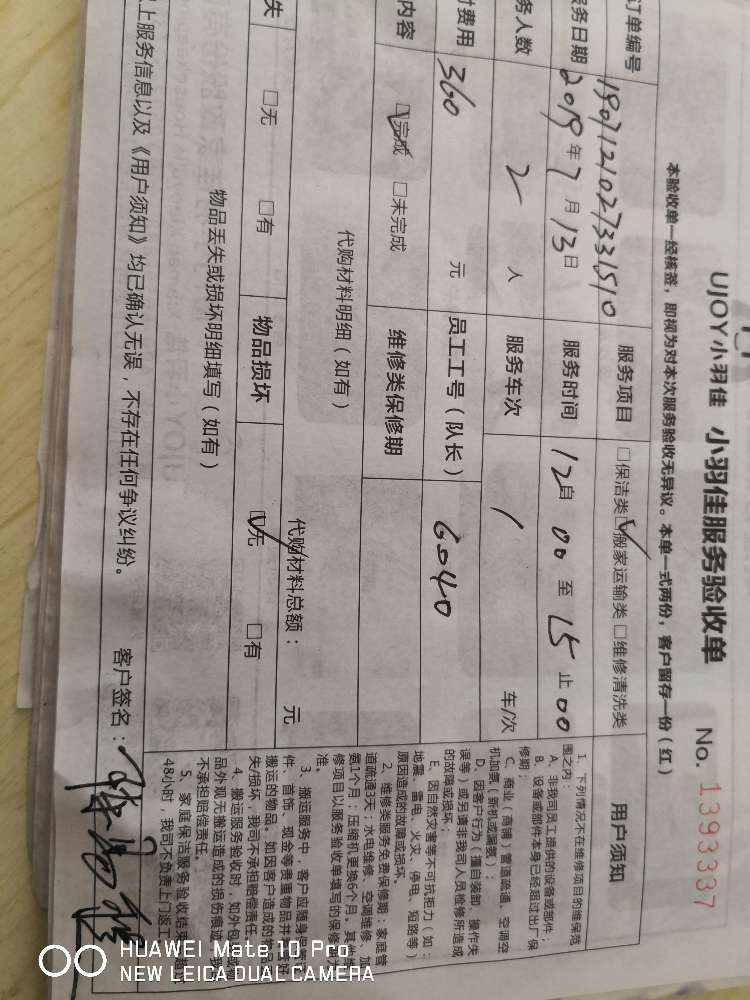 UJOY小羽佳 小羽佳服务验收单 No. 1393337
本验收单一经核签，即视为对本次服务验收无异议。本单一式两份，客户留存一份（红）
订单编号 1907121027331510 服务项目 □保洁类 ☑搬家运输类 □维修清洗类
服务日期 2019年7月13日 服务时间 12自00至15止00
务人数 2人 服务车次 1 车/次
付费用 360 元 员工工号（队长） 6040
内容 ☑完成 □未完成 维修类保修期
代购材料明细（如有） 代购材料总额： 元
失 □无 □有 物品损坏 ☑无 □有
物品丢失或损坏明细填写（如有）
上服务信息以及《用户须知》均已确认无误，不存在任何争议纠纷。 客户签名：
用户须知
1、下列情况不在维修项目的维保范
围之内：
A、非我司员工提供的设备或部件；
B、设备或部件本身已经超过出厂保
修期；
C、商业（商铺）管道疏通、空调空
机加氨（新机或漏氨）；
D、因客户行为（擅自装卸、操作失
误等）或另请非我司人员检修所造成
的故障或损坏；
E、因自然灾害等不可抗拒力（如：
地震、雷电、火灾、停电、短路等）
原因造成的故障或损坏。
2、维修类服务免费保修期：家庭管
道疏通3天；水电维修、空调维修、加
氨1个月；压缩机更换6个月。其他维
修项目以服务验收单填写的保修期为
准。
3、搬运服务中，客户应随身保管
件、首饰、现金等贵重物品并
搬运的物品。如因客户造成的
失/损坏，我司不承担赔偿责任
4、搬运服务验收时，如外包
品外观无搬运造成的损伤痕迹
不承担赔偿责任。
5、家庭保洁服务验收结束
48小时，我司不负责上门返工
HUAWEI Mate 10 Pro
NEW LEICA DUAL CAMERA